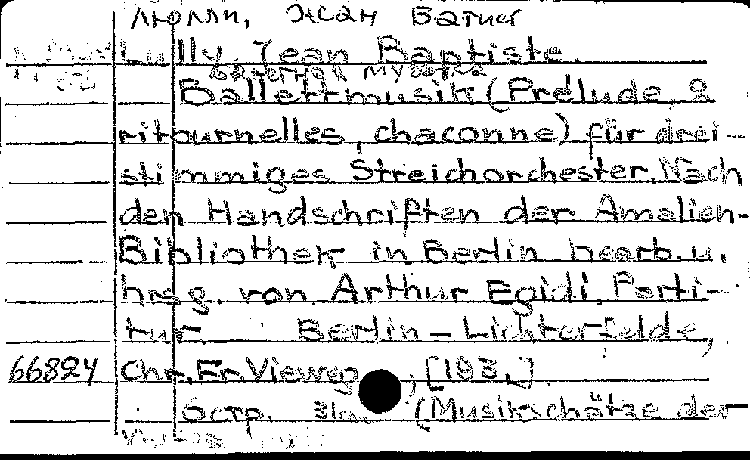 Люлли, Жан Батист
Lully, Jean Baptiste.
Ballettmusik (Prélude, 2
ritournelles, chaconne) für drei-
stimmiges Streichorchester. Nach
den Handschriften der Amalien-
Bibliothek in Berlin bearb. u.
hrsg. von Arthur Egidi. Parti-
tur. Berlin – Lichterfelde,
66824 Chr. Fr. Vieweg, [193.]
(Musikschätze der